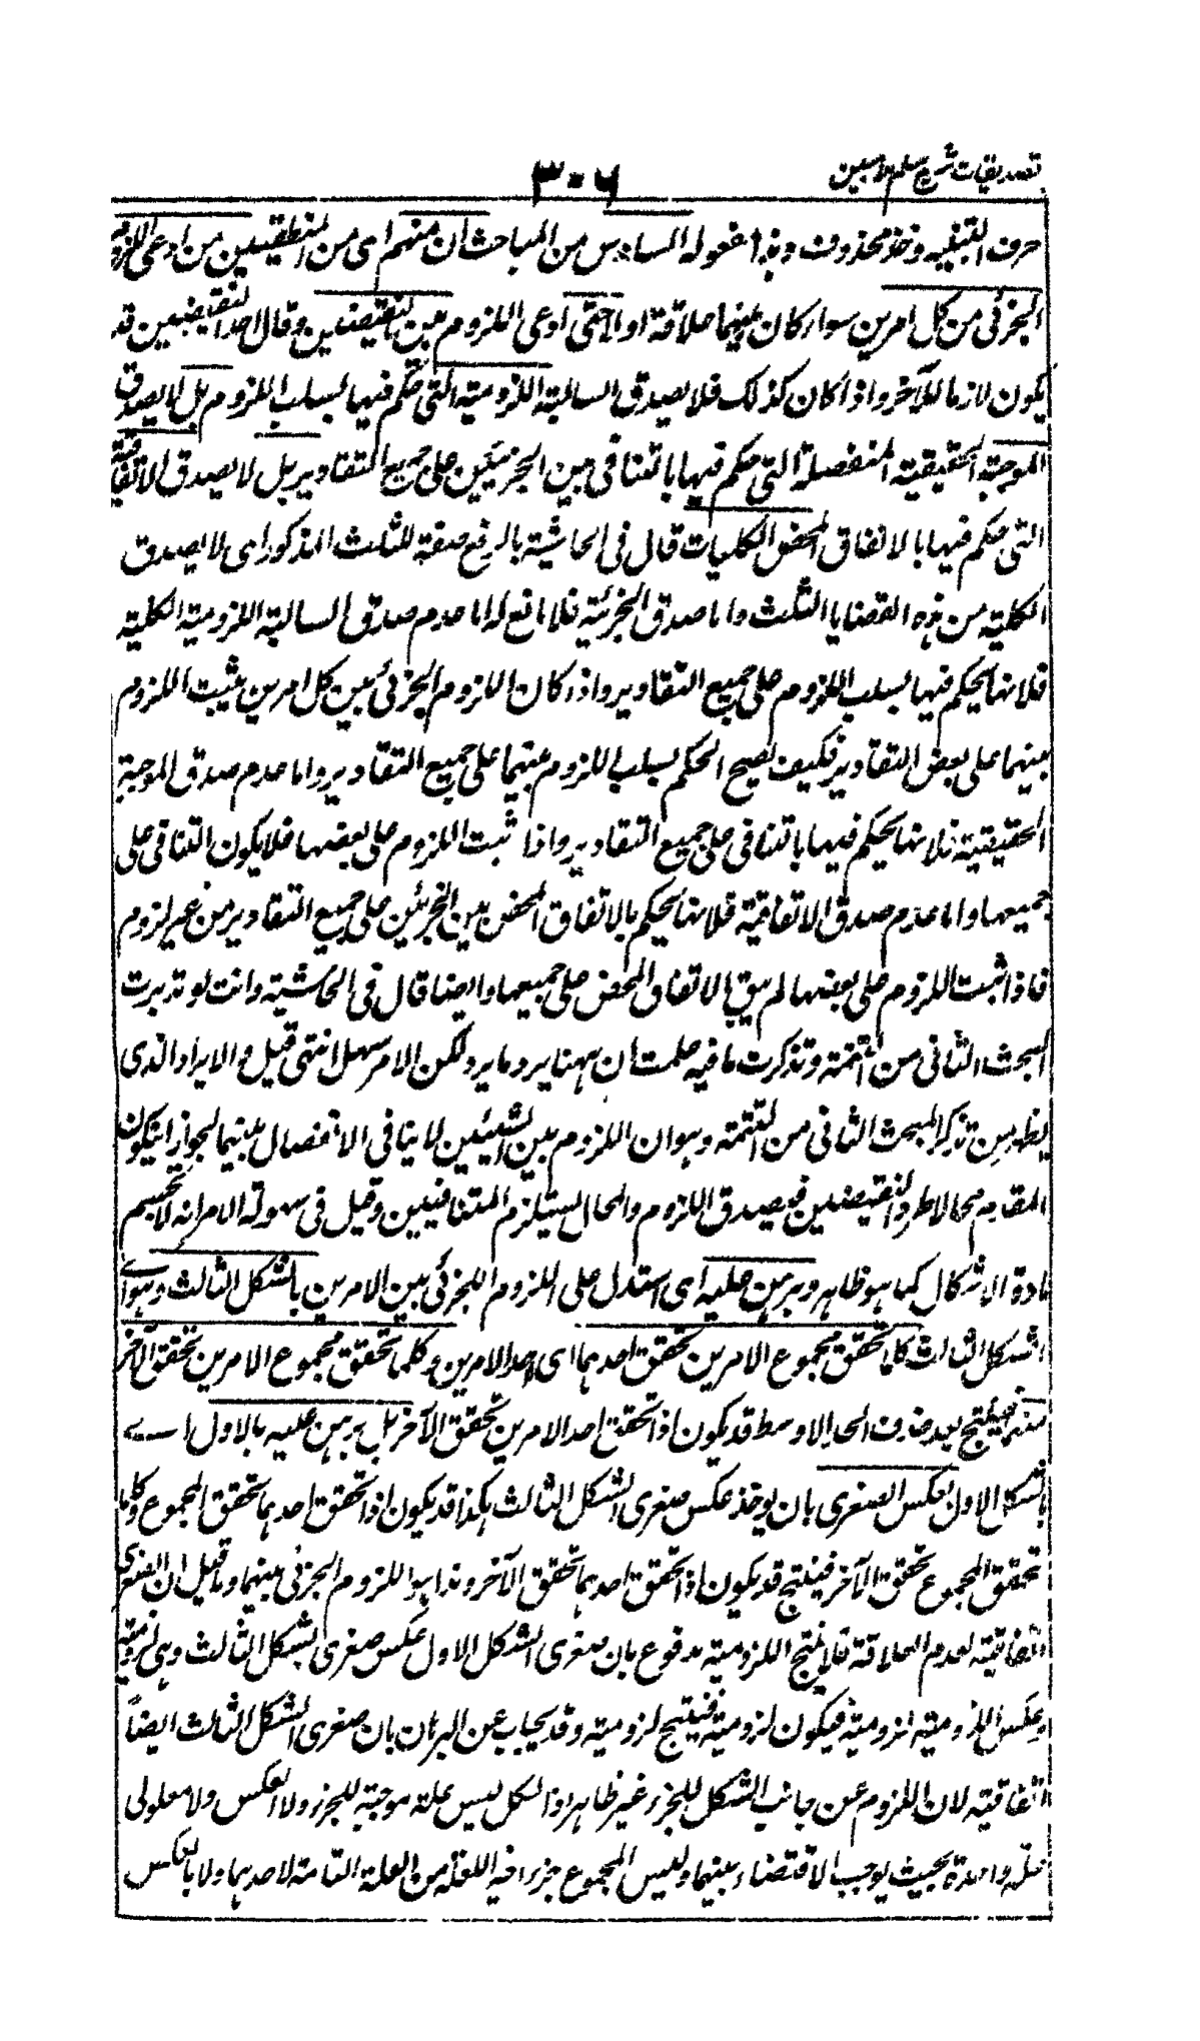 تصدیقات شرح سلم ملا مبین
۳۰۶
حرف التنبیه وخبره محذوف وهذا مفعوله السادس من المباحث ان منهم ای من المنطقیین من ادعی اللزوم
الجزئی من کل امرین سواء کان بینهما علاقة او لا حتی ادعی اللزوم بین النقیضین وقال احد النقیضین قد
یکون لازما للآخر واذا کان کذلک فلا یصدق السالبة اللزومیة التی حکم فیها بسلب اللزوم بل لا یصدق
الموجبة الحقیقیة المنفصلة التی حکم فیها بالتنافی بین الجزئین علی جمیع التقادیر بل لا یصدق الاتفاقیة
التی حکم فیها بالاتفاق المحض الکلیات قال فی الحاشیة بالرفع صفة للثلث المذکور ای لا یصدق
الکلیة من هذه القضایا الثلث واما صدق الجزئیة فلا مانع له اما عدم صدق السالبة اللزومیة الکلیة
فلانها یحکم فیها بسلب اللزوم علی جمیع التقادیر واذا کان اللزوم الجزئی بین کل امرین یثبت اللزوم
بینهما علی بعض التقادیر فکیف یصح الحکم بسلب اللزوم عنهما علی جمیع التقادیر واما عدم صدق الموجبة
الحقیقیة فلانها یحکم فیها بالتنافی علی جمیع التقادیر واذا ثبت اللزوم علی بعضها فلا یکون التنافی علی
جمیعها واما عدم صدق الاتفاقیة فلانها یحکم بالاتفاق المحض بین الجزئین علی جمیع التقادیر من غیر لزوم
فاذا ثبت اللزوم علی بعضها لم یبق الاتفاق المحض علی جمیعها وایضا قال فی الحاشیة وانت لو تدبرت
المبحث الثانی من التتمة وتذکرت ما فیه علمت ان ههنا یرد ما یرد لکن الامر سهل انتهی قیل والایراد الذی
یظهر من تذکر المبحث الثانی من التتمة وهو ان اللزوم بین الشیئین لا ینافی الانفصال بینهما لجواز ان یکون
المقدم محالا طرد النقیضین فیصدق اللزوم والمحال یستلزم المتنافیین وقیل فی سهولة الامر انه لا یحسم
مادة الاشکال کما هو ظاهر وبرهن علیه ای استدل علی اللزوم الجزئی بین الامرین بالشکل الثالث وهو ای
الشکل الثالث کلما تحقق مجموع الامرین تحقق احدهما ای احد الامرین وکلما تحقق مجموع الامرین تحقق الآخر
منهما فینتج بعد حذف الحد الاوسط قد یکون اذا تحقق احد الامرین تحقق الآخر بل برهن علیه بالاول اے
بالشکل الاول بعکس الصغری بان یوخذ عکس صغری الشکل الثالث هکذا قد یکون اذا تحقق احدهما تحقق المجموع وکلما
تحقق المجموع تحقق الآخر فینتج قد یکون اذا تحقق احدهما تحقق الآخر وهذا هو اللزوم الجزئی بینهما وما قیل ان الصغری
اتفاقیة لعدم العلاقة فلا ینتج اللزومیة مدفوع بان صغری الشکل الاول عکس صغری الشکل الثالث وهی لزومیة
وعکس اللزومیة لزومیة فیکون لزومیة فینتج لزومیة وقد یجاب عن البرهان بان صغری الشکل الثالث ایضاً
اتفاقیة لان اللزوم عن جانب الشکل للجزء غیر ظاهر اذ الکل لیس علة موجبة للجزء ولا العکس ولا معلولی
علة واحدة بحیث یوجب الاقتضاء بینهما ولیس المجموع جزء من العلة التامة لاحدهما ولا بالعکس